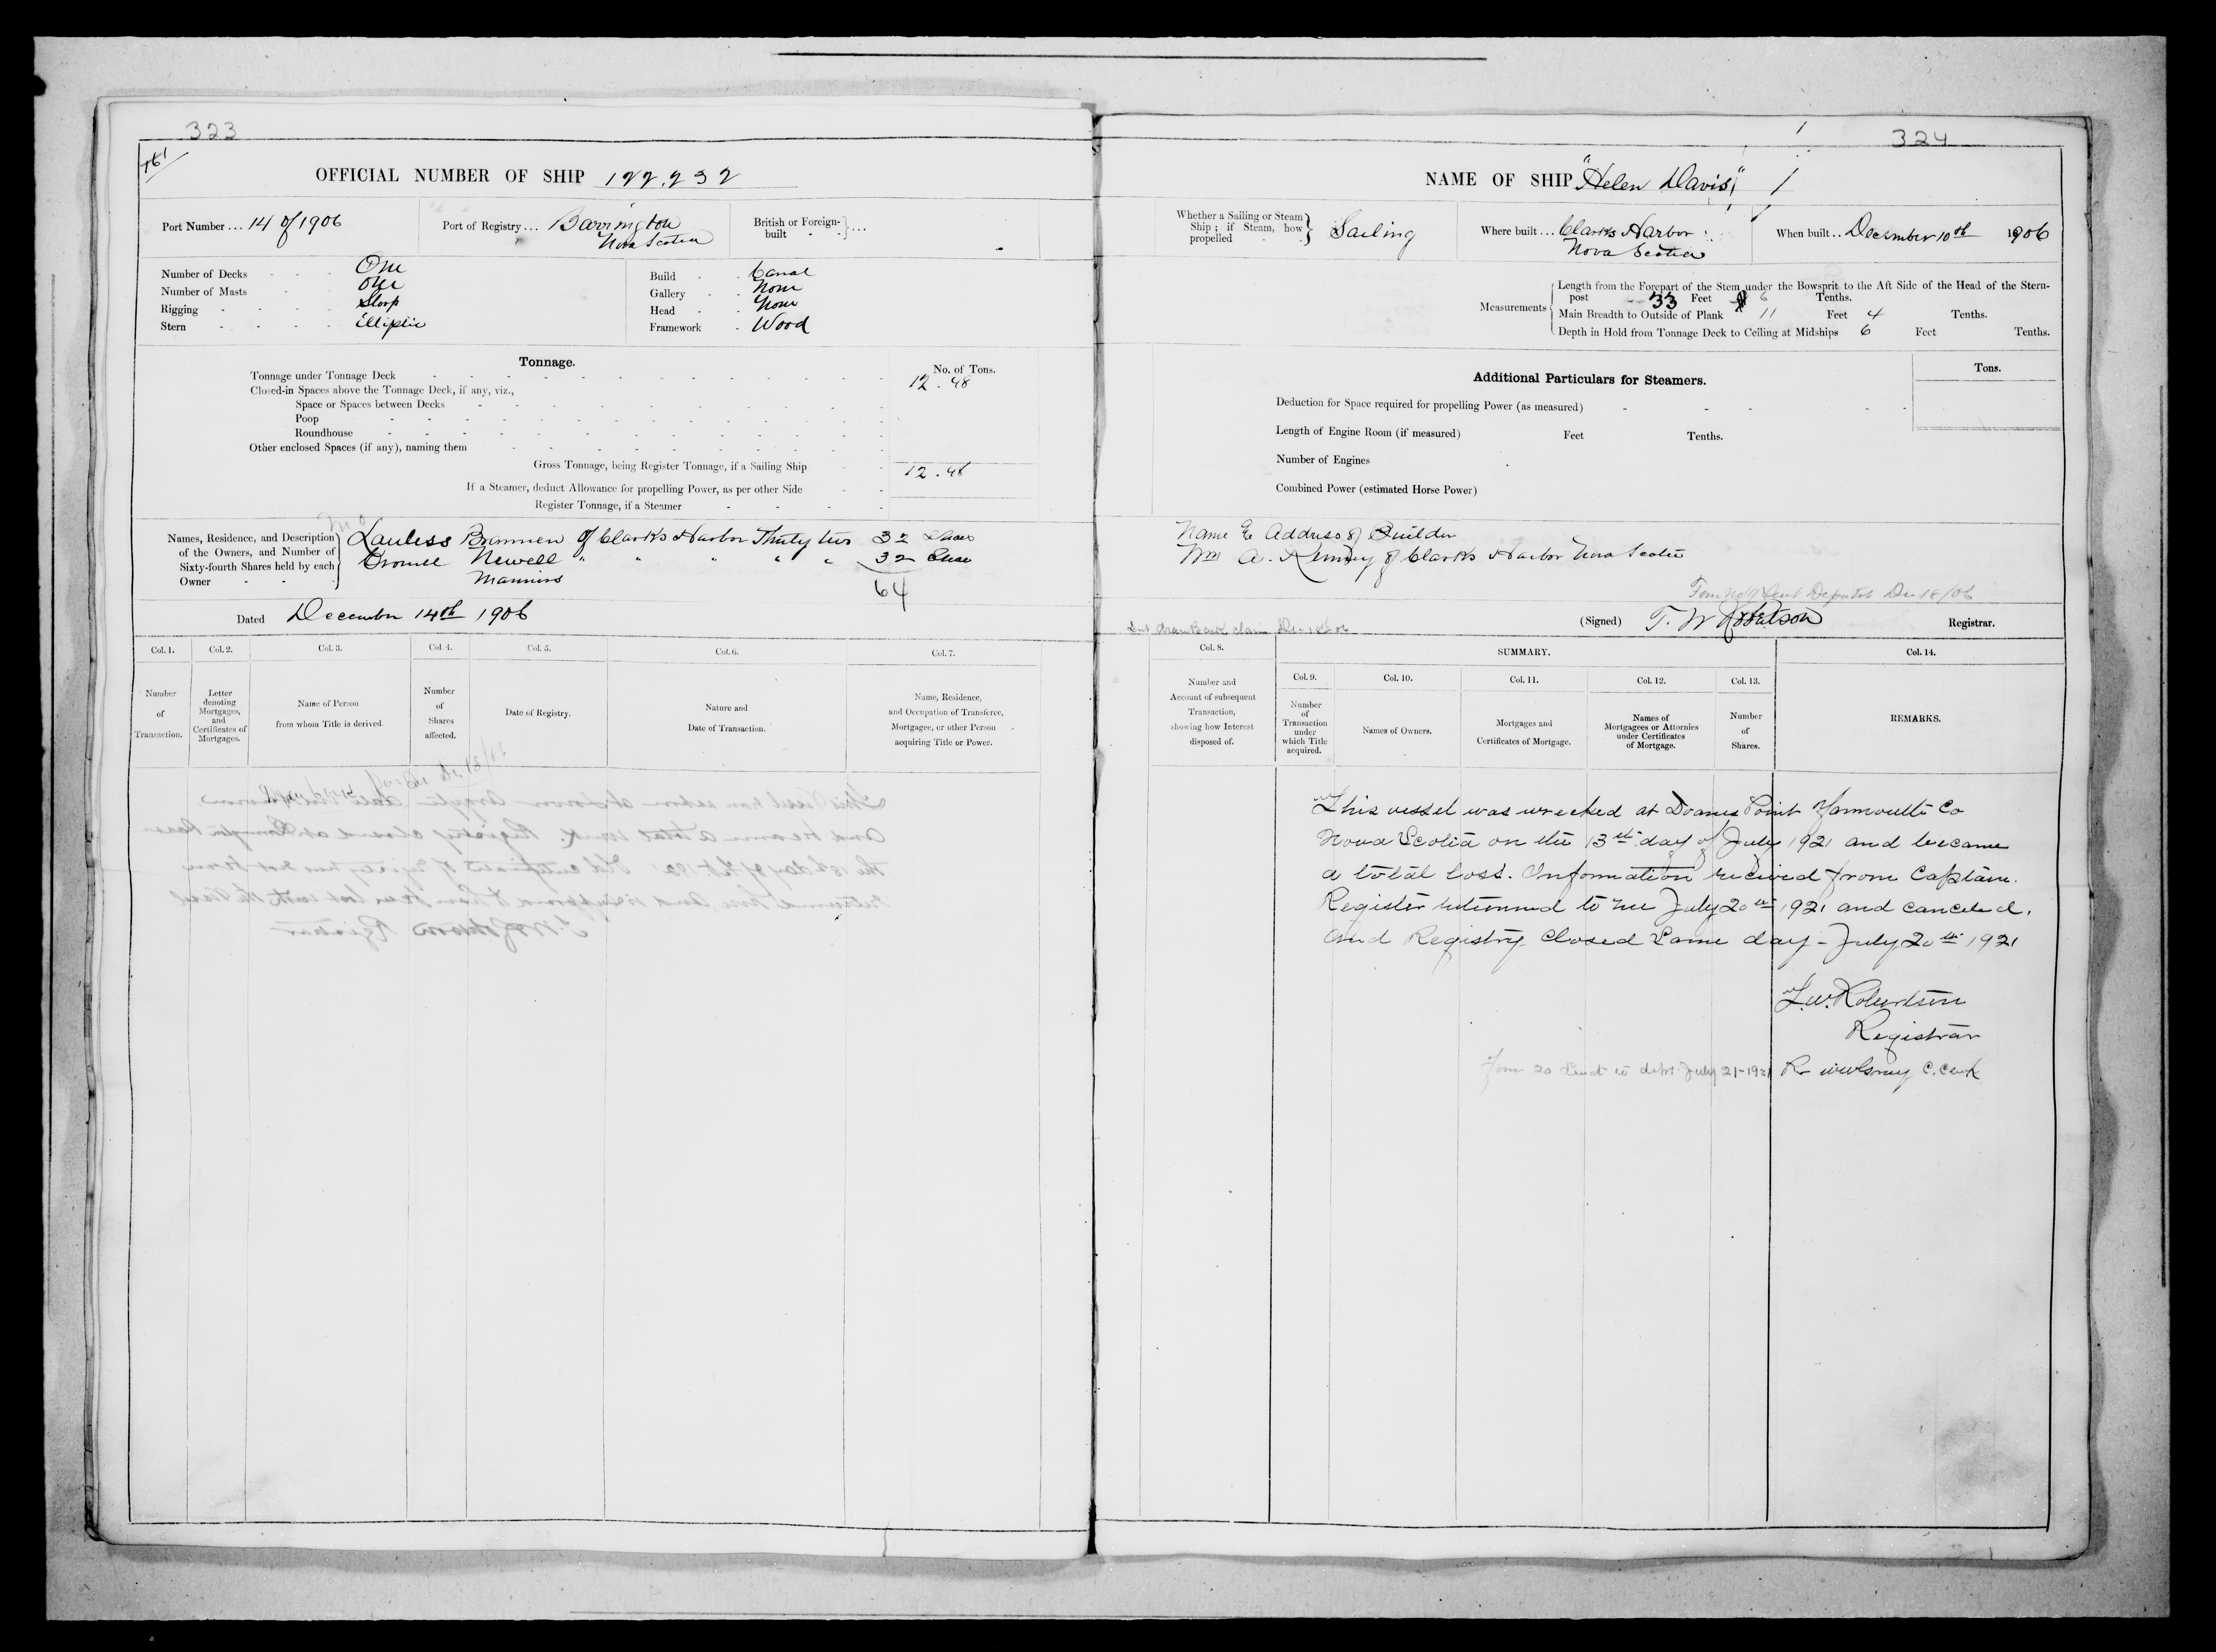 323
OFFICIAL NUMBER OF SHIP 122,232
Port Number... 14 of 1906
Port of Registry... Barrington
Nova Scotia
British or Foreign-
built - - } ....
Number of Decks - - - One
Number of Masts - - One
Rigging - - - - Sloop
Stern - - - - Elliptic
Build - - Carval
Gallery - - None
Head - - None
Framework - Wood
Tonnage.
No. of Tons.
Tonnage under Tonnage Deck 12.48
Closed-in Spaces above the Tonnage Deck, if any, viz.,
Space or Spaces between Decks
Poop
Roundhouse
Other enclosed Spaces (if any), naming them
Gross Tonnage, being Register Tonnage, if a Sailing Ship 12.48
If a Steamer, deduct Allowance for propelling Power, as per other Side
Register Tonnage, if a Steamer
Names, Residence, and Description
of the Owners, and Number of
Sixty-fourth Shares held by each
Owner - - -
Brannen of Clarks Harbor Thirty two 32 Shares
Newell " " " " " 32 Shares
Mariners
64
Dated December 14th 1906
Col. 1.
Number
of
Transaction.
Col. 2.
Letter
denoting
Mortgages,
and
Certificates of
Mortgages.
Col. 3.
Name of Person
from whom Title is derived.
Col. 4.
Number
of
Shares
affected.
Col. 5.
Date of Registry.
Col. 6.
Nature and
Date of Transaction.
Col. 7.
Name, Residence,
and Occupation of Transferee,
Mortgagee, or other Person
acquiring Title or Power.
324
NAME OF SHIP "Helen Davis"
Whether a Sailing or Steam
Ship; if Steam, how
propelled - - } Sailing
Where built... Clarks Harbor
Nova Scotia
When built.. December 10th 1906
Measurements
Length from the Forepart of the Stem under the Bowsprit to the Aft Side of the Head of the Stern-
post 33 Feet 6 Tenths.
Main Breadth to Outside of Plank 11 Feet 4 Tenths.
Depth in Hold from Tonnage Deck to Ceiling at Midships 6 Feet Tenths.
Additional Particulars for Steamers.
Tons.
Deduction for Space required for propelling Power (as measured)
Length of Engine Room (if measured) Feet Tenths.
Number of Engines
Combined Power (estimated Horse Power)
Name & Address of Builder
Wm A. Kenney of Clarks Harbor Nova Scotia
Sent Dec 18/06
(Signed) T. W. Robertson Registrar.
Col. 8.
Number and
Account of subsequent
Transaction,
showing how Interest
disposed of.
SUMMARY.
Col. 9.
Number
of
Transaction
under
which Title
acquired.
Col. 10.
Names of Owners.
Col. 11.
Mortgages and
Certificates of Mortgage.
Col. 12.
Names of
Mortgagees or Attornies
under Certificates
of Mortgage.
Col. 13.
Number
of
Shares.
Col. 14.
REMARKS.
This vessel was wrecked at Doanes Point Yarmouth Co
Nova Scotia on the 13th day of July 1921 and became
a total loss. Information recieved from Captain.
Register returned to me July 20th 1921 and canceled.
and Registry closed Same day - July 20th 1921
T. W. Robertson
Registrar
Form 20 sent to dept July 21-1921